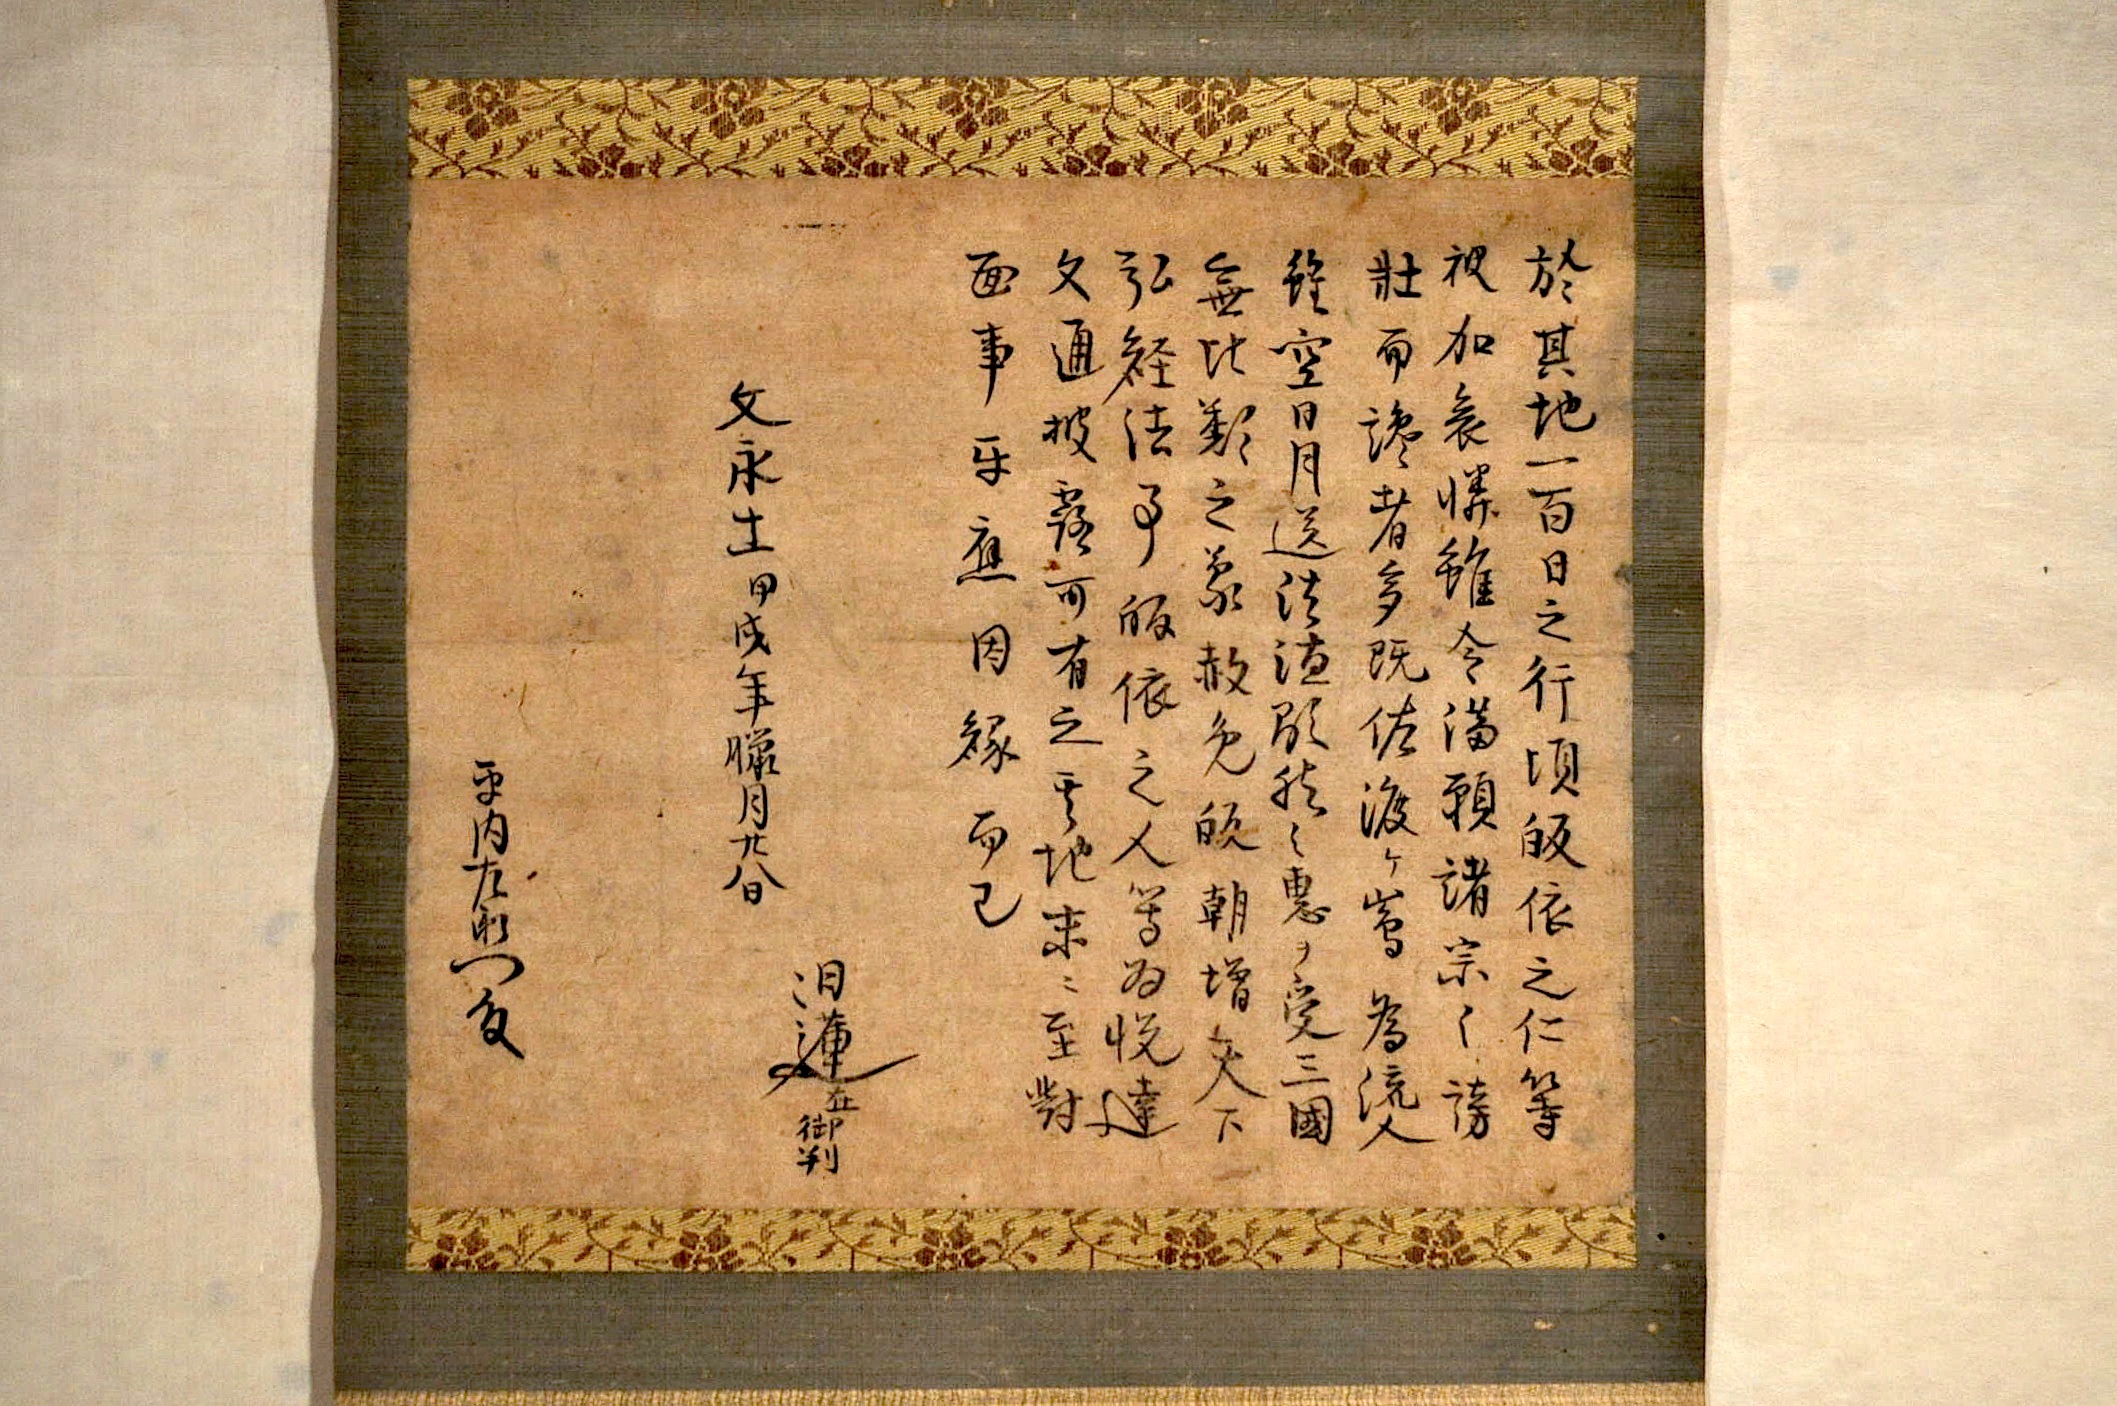 於其地一百日之行頃皈依之仁等
被加哀憐雖令満願諸宗之謗
壮而讒者多既佐渡ヶ嶌為流人
雖空日月送法徳顕然之恵ヲ受三國
無比類之蒙赦免皈朝増天下
弘経法予皈依之人等為悦達
文通披露可有之其地来ニ至對
面事牙應因縁而已
日蓮在御判
文永十一甲戌年臘月廿八日
平内左衛門殿